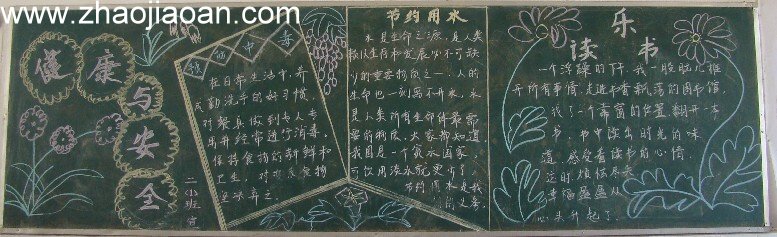 www.zhaojiaoan.com
健康与安全
预防中毒
在日常生活中，养
成勤洗手的好习惯，
对餐具做到专人专
用并经常进行消毒，
保持食物的新鲜和
卫生，对变质食物
坚决弃之。
二(3)班 宣
节约用水
水是生命之源，是人类
赖以生存和发展必不可缺
少的重要物质之一，人的
生命也一刻离不开水，水
是人类所有生命体非常
要的物质，大家都知道
我国是一个贫水国家，
可饮用淡水就更少了，
节约用水是我
们的义务。
乐
读书
一个浮躁的下午，我一股脑儿推
开所有事情，走进书香飘溢的图书馆
找了一个靠窗的位置，翻开一本
书，书中读出时光的味
道，感受着读书的心情，
这时烦恼尽失
幸福盈盈从
心头升起了。